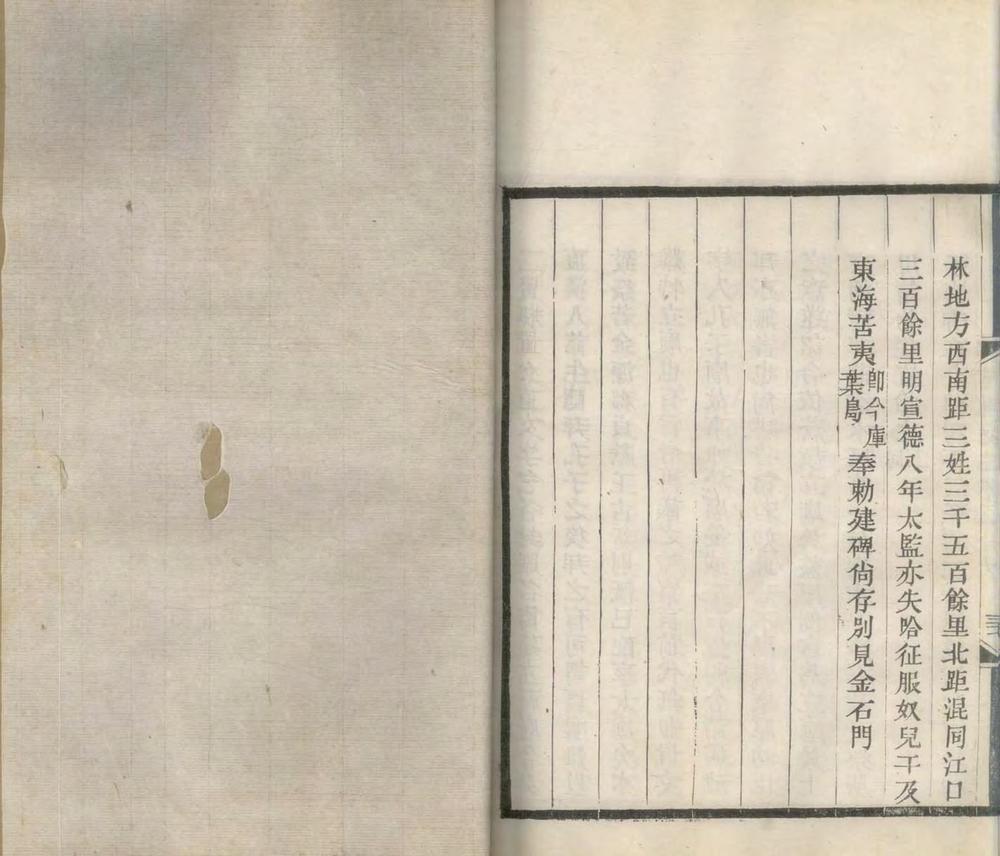 林地方西南距三姓三千五百餘里北距混同江口
三百餘里明宣德八年太監亦失哈征服奴兒干及
東海苦夷即今庫葉島奉勅建碑尙存別見金石門